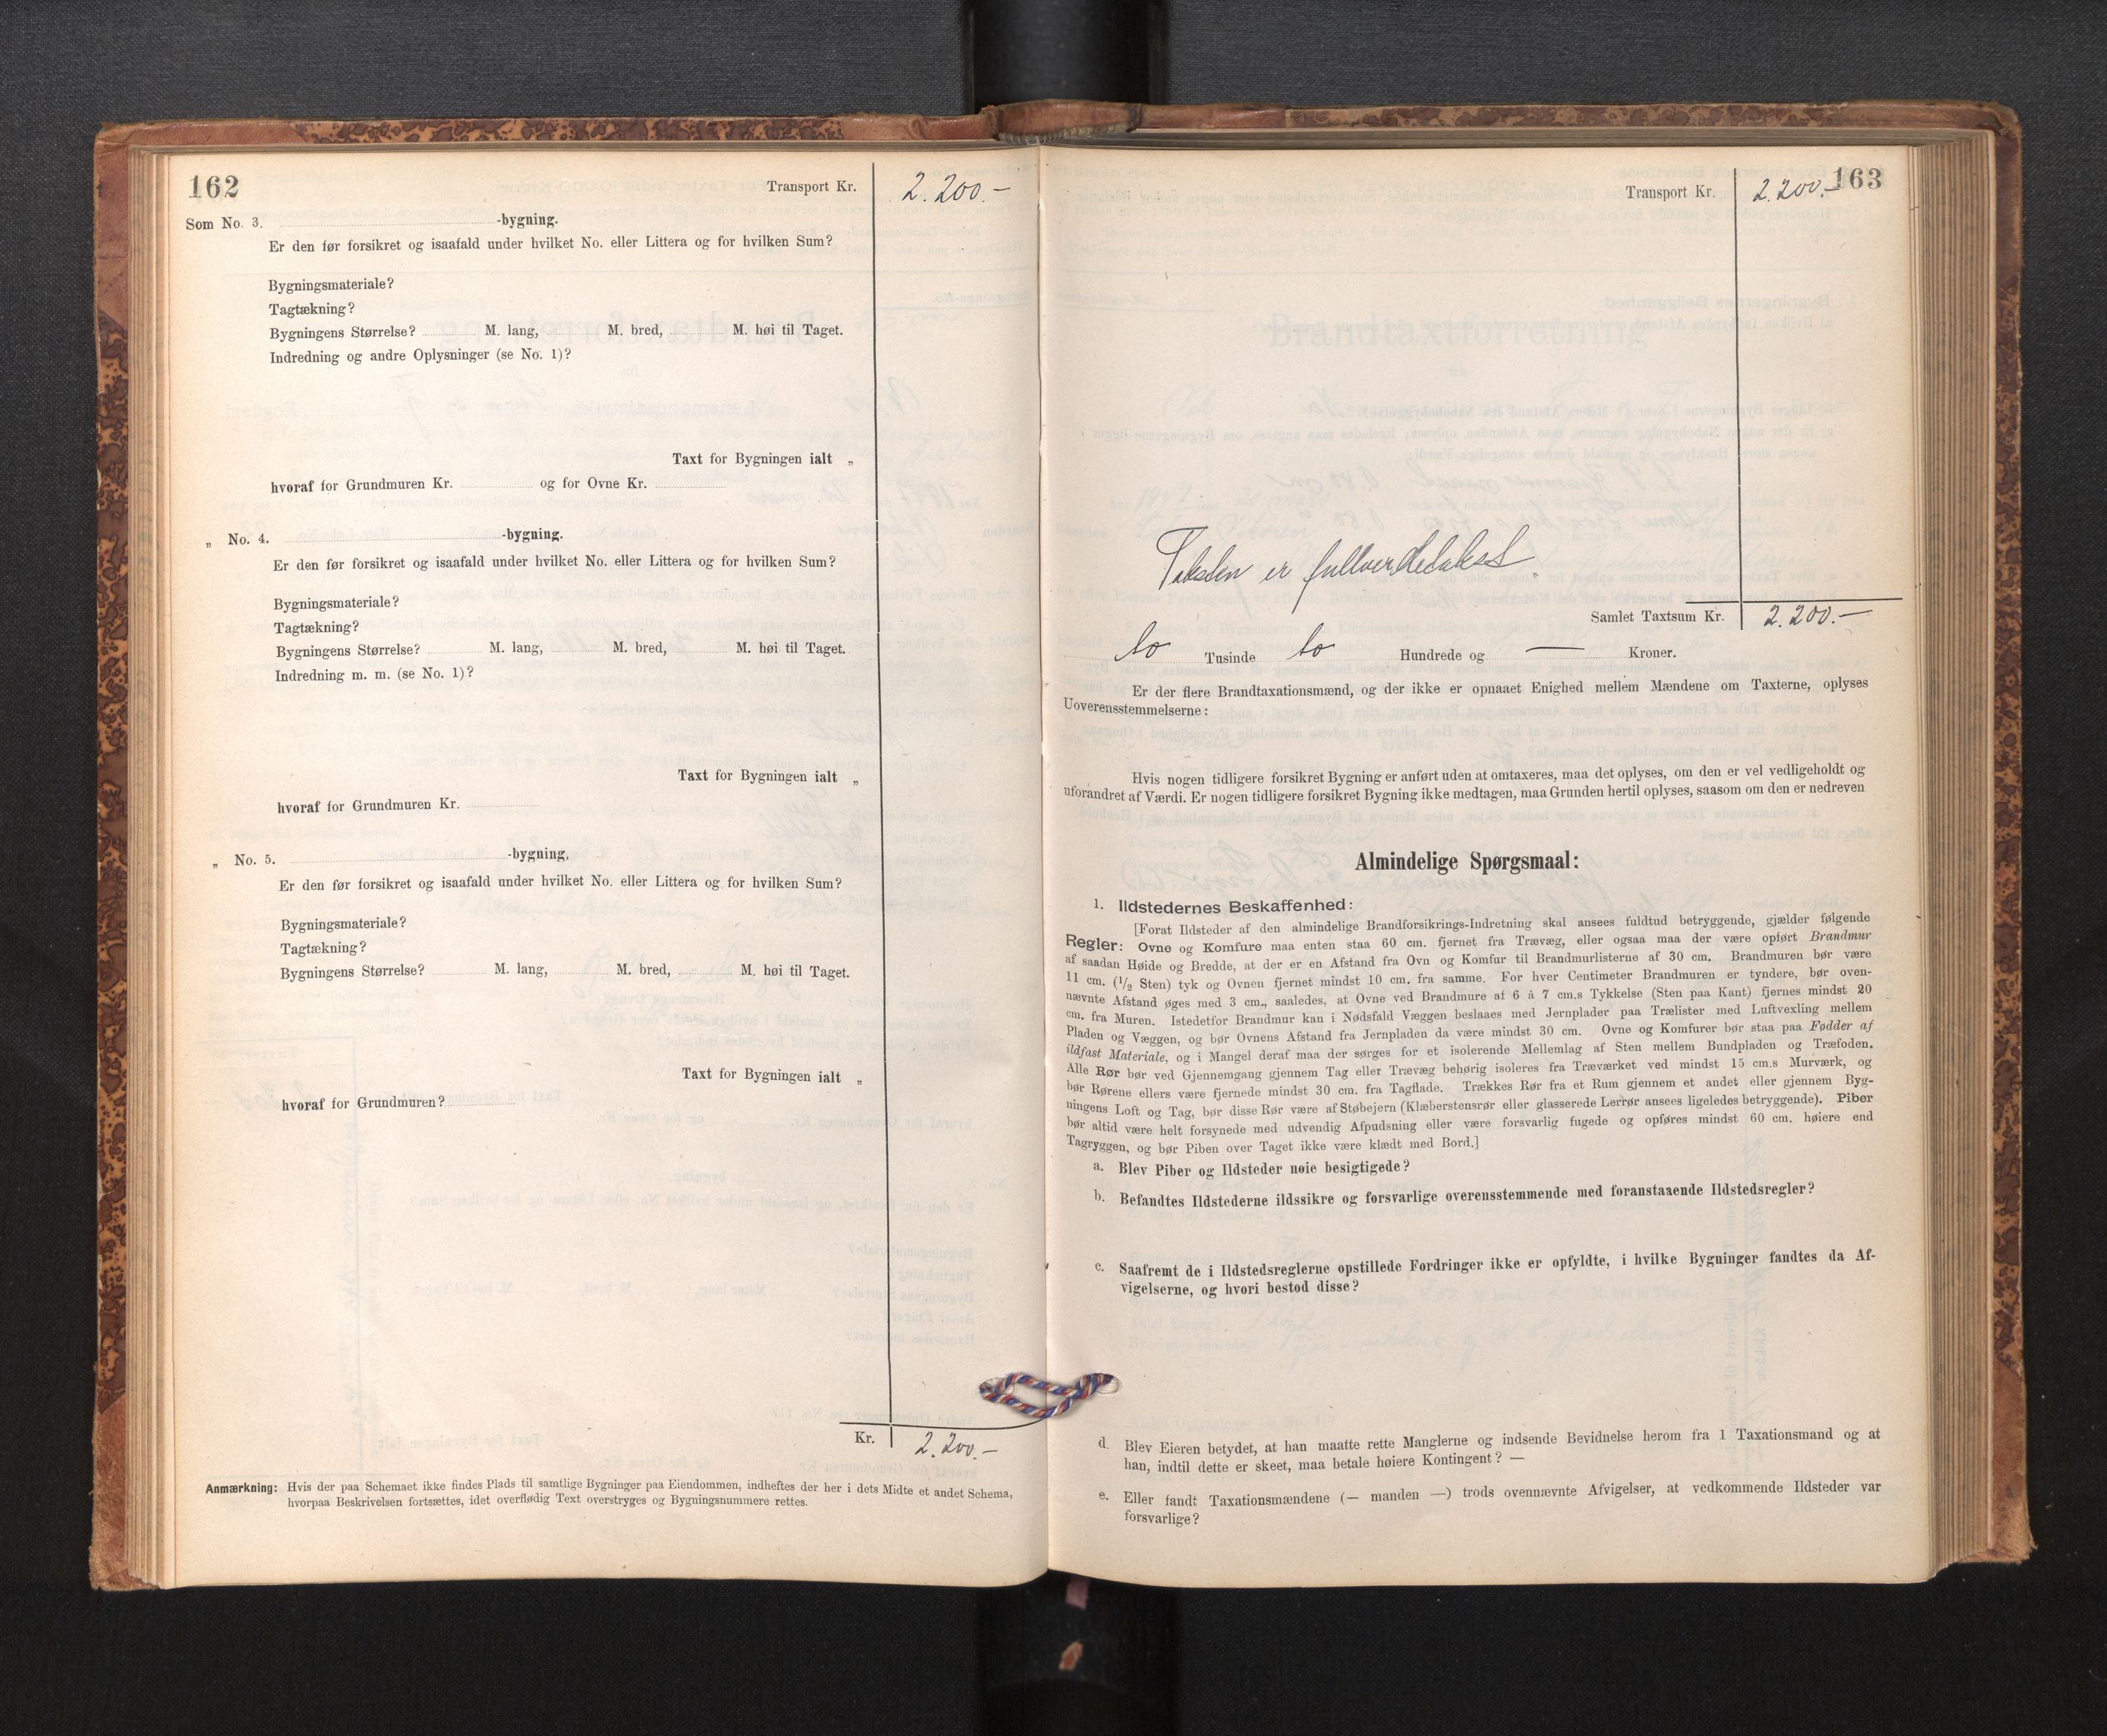 162
Transport Kr. 2.200.-
Som No. 3. -bygning.
Er den før forsikret og isaafald under hvilket No. eller Littera og for hvilken Sum?
Bygningsmateriale?
Tagtækning?
Bygningens Størrelse? M. lang, M. bred, M. høi til Taget.
Indredning og andre Oplysninger (se No. 1)?
Taxt for Bygningen ialt „
hvoraf for Grundmuren Kr. og for Ovne Kr.
„ No. 4. -bygning.
Er den før forsikret og isaafald under hvilket No. eller Littera og for hvilken Sum?
Bygningsmateriale?
Tagtækning?
Bygningens Størrelse? M. lang, M. bred, M. høi til Taget.
Indredning m. m. (se No. 1)?
Taxt for Bygningen ialt „
hvoraf for Grundmuren Kr.
„ No. 5. -bygning,
Er den før forsikret og isaafald under hvilket No. eller Littera og for hvilken Sum?
Bygningsmateriale?
Tagtækning?
Bygningens Størrelse? M. lang, M. bred, M. høi til Taget.
Taxt for Bygningen ialt „
hvoraf for Grundmuren?
Kr. 2.200.-
Anmærkning: Hvis der paa Schemaet ikke findes Plads til samtlige Bygninger paa Eiendommen, indheftes der her i dets Midte et andet Schema,
hvorpaa Beskrivelsen fortsættes, idet overflødig Text overstryges og Bygningsnummere rettes.
163
Transport Kr. 2.200.-
Taksten er fullverditakst.
Samlet Taxtsum Kr. 2.200.-
to Tusinde to Hundrede og — Kroner.
Er der flere Brandtaxationsmænd, og der ikke er opnaaet Enighed mellem Mændene om Taxterne, oplyses
Uoverensstemmelserne:
Hvis nogen tidligere forsikret Bygning er anført uden at omtaxeres, maa det oplyses, om den er vel vedligeholdt og
uforandret af Værdi. Er nogen tidligere forsikret Bygning ikke medtagen, maa Grunden hertil oplyses, saasom om den er nedreven
Almindelige Spørgsmaal:
1. Ildstedernes Beskaffenhed:
[Forat Ildsteder af den almindelige Brandforsikrings-Indretning skal ansees fuldtud betryggende, gjælder følgende
Regler: Ovne og Komfure maa enten staa 60 cm. fjernet fra Trævæg, eller ogsaa maa der være opført Brandmur
af saadan Høide og Bredde, at der er en Afstand fra Ovn og Komfur til Brandmurlisterne af 30 cm. Brandmuren bør være
11 cm. (1/2 Sten) tyk og Ovnen fjernet mindst 10 cm. fra samme. For hver Centimeter Brandmuren er tyndere, bør oven-
nævnte Afstand øges med 3 cm., saaledes, at Ovne ved Brandmure af 6 à 7 cm.s Tykkelse (Sten paa Kant) fjernes mindst 20
cm. fra Muren. Istedetfor Brandmur kan i Nødsfald Væggen beslaaes med Jernplader paa Trælister med Luftvexling mellem
Pladen og Væggen, og bør Ovnens Afstand fra Jernpladen da være mindst 30 cm. Ovne og Komfurer bør staa paa Fødder af
ildfast Materiale, og i Mangel deraf maa der sørges for et isolerende Mellemlag af Sten mellem Bundpladen og Træfoden.
Alle Rør bør ved Gjennemgang gjennem Tag eller Trævæg behørig isoleres fra Træværket ved mindst 15 cm.s Murværk, og
bør Rørene ellers være fjernede mindst 30 cm. fra Tagflade. Trækkes Rør fra et Rum gjennem et andet eller gjennem Byg-
ningens Loft og Tag, bør disse Rør være af Støbejern (Klæberstensrør eller glasserede Lerrør ansees ligeledes betryggende). Piber
bør altid være helt forsynede med udvendig Afpudsning eller være forsvarlig fugede og opføres mindst 60 cm. høiere end
Tagryggen, og bør Piben over Taget ikke være klædt med Bord.]
a. Blev Piber og Ildsteder nøie besigtigede?
b. Befandtes Ildstederne ildssikre og forsvarlige overensstemmende med foranstaaende Ildstedsregler?
c. Saafremt de i Ildstedsreglerne opstillede Fordringer ikke er opfyldte, i hvilke Bygninger fandtes da Af-
vigelserne, og hvori bestod disse?
d. Blev Eieren betydet, at han maatte rette Manglerne og indsende Bevidnelse herom fra 1 Taxationsmand og at
han, indtil dette er skeet, maa betale høiere Kontingent? —
e. Eller fandt Taxationsmændene (— manden —) trods ovennævnte Afvigelser, at vedkommende Ildsteder var
forsvarlige?